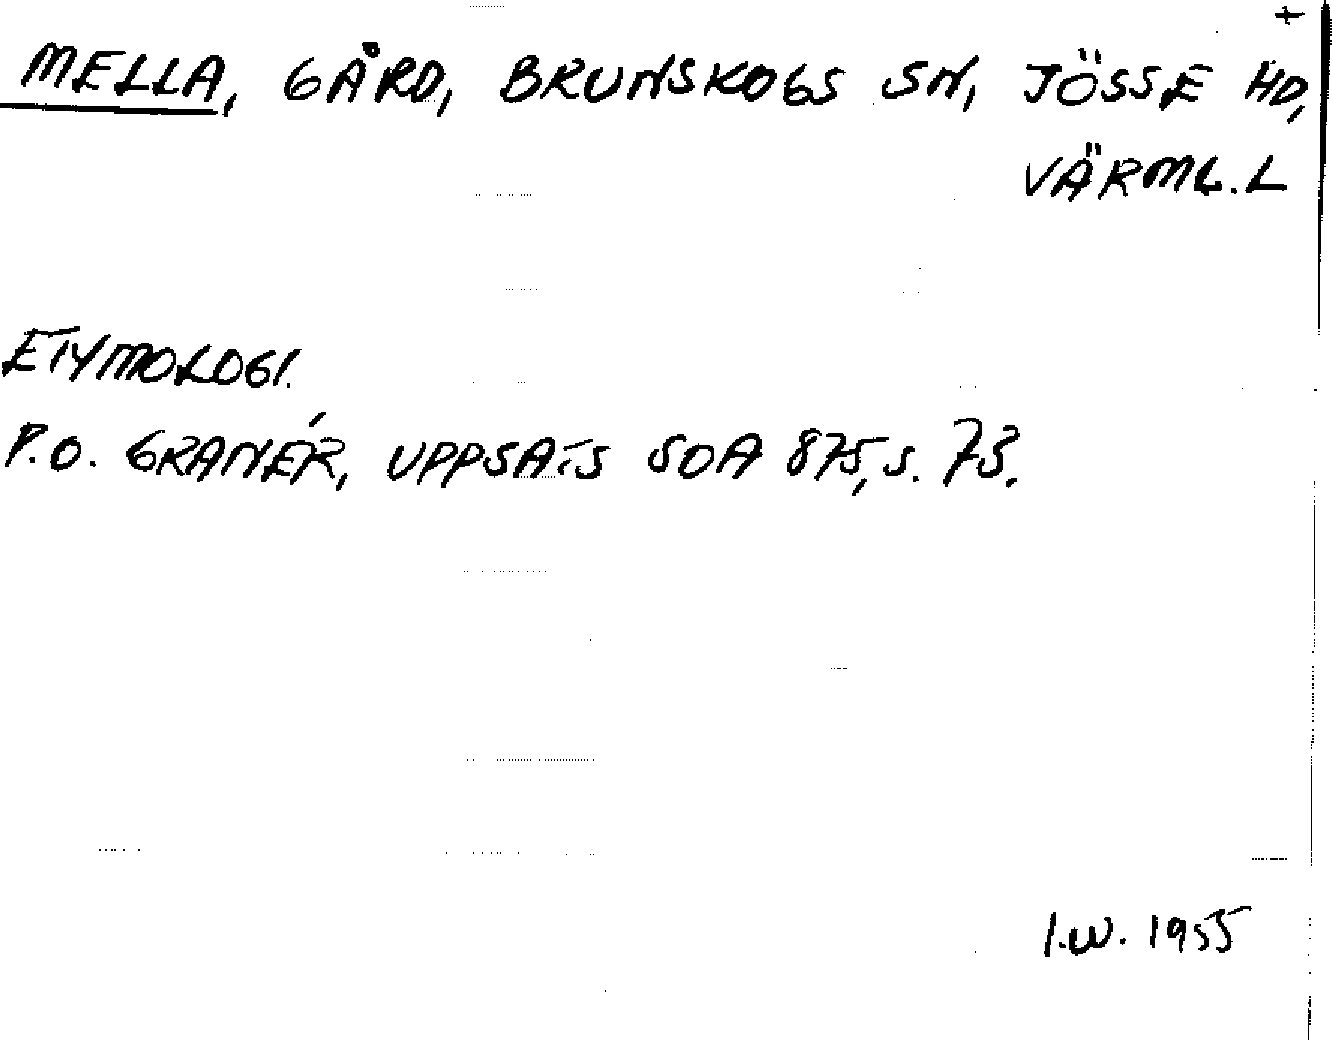 +
MELLA, GÅRD, BRUNSKOGS SN, JÖSSE HD,
VÄRML. L
ETYMOLOGI.
P.O. GRANÉR, UPPSATS SOA 875, S. 73.
I.W. 1955